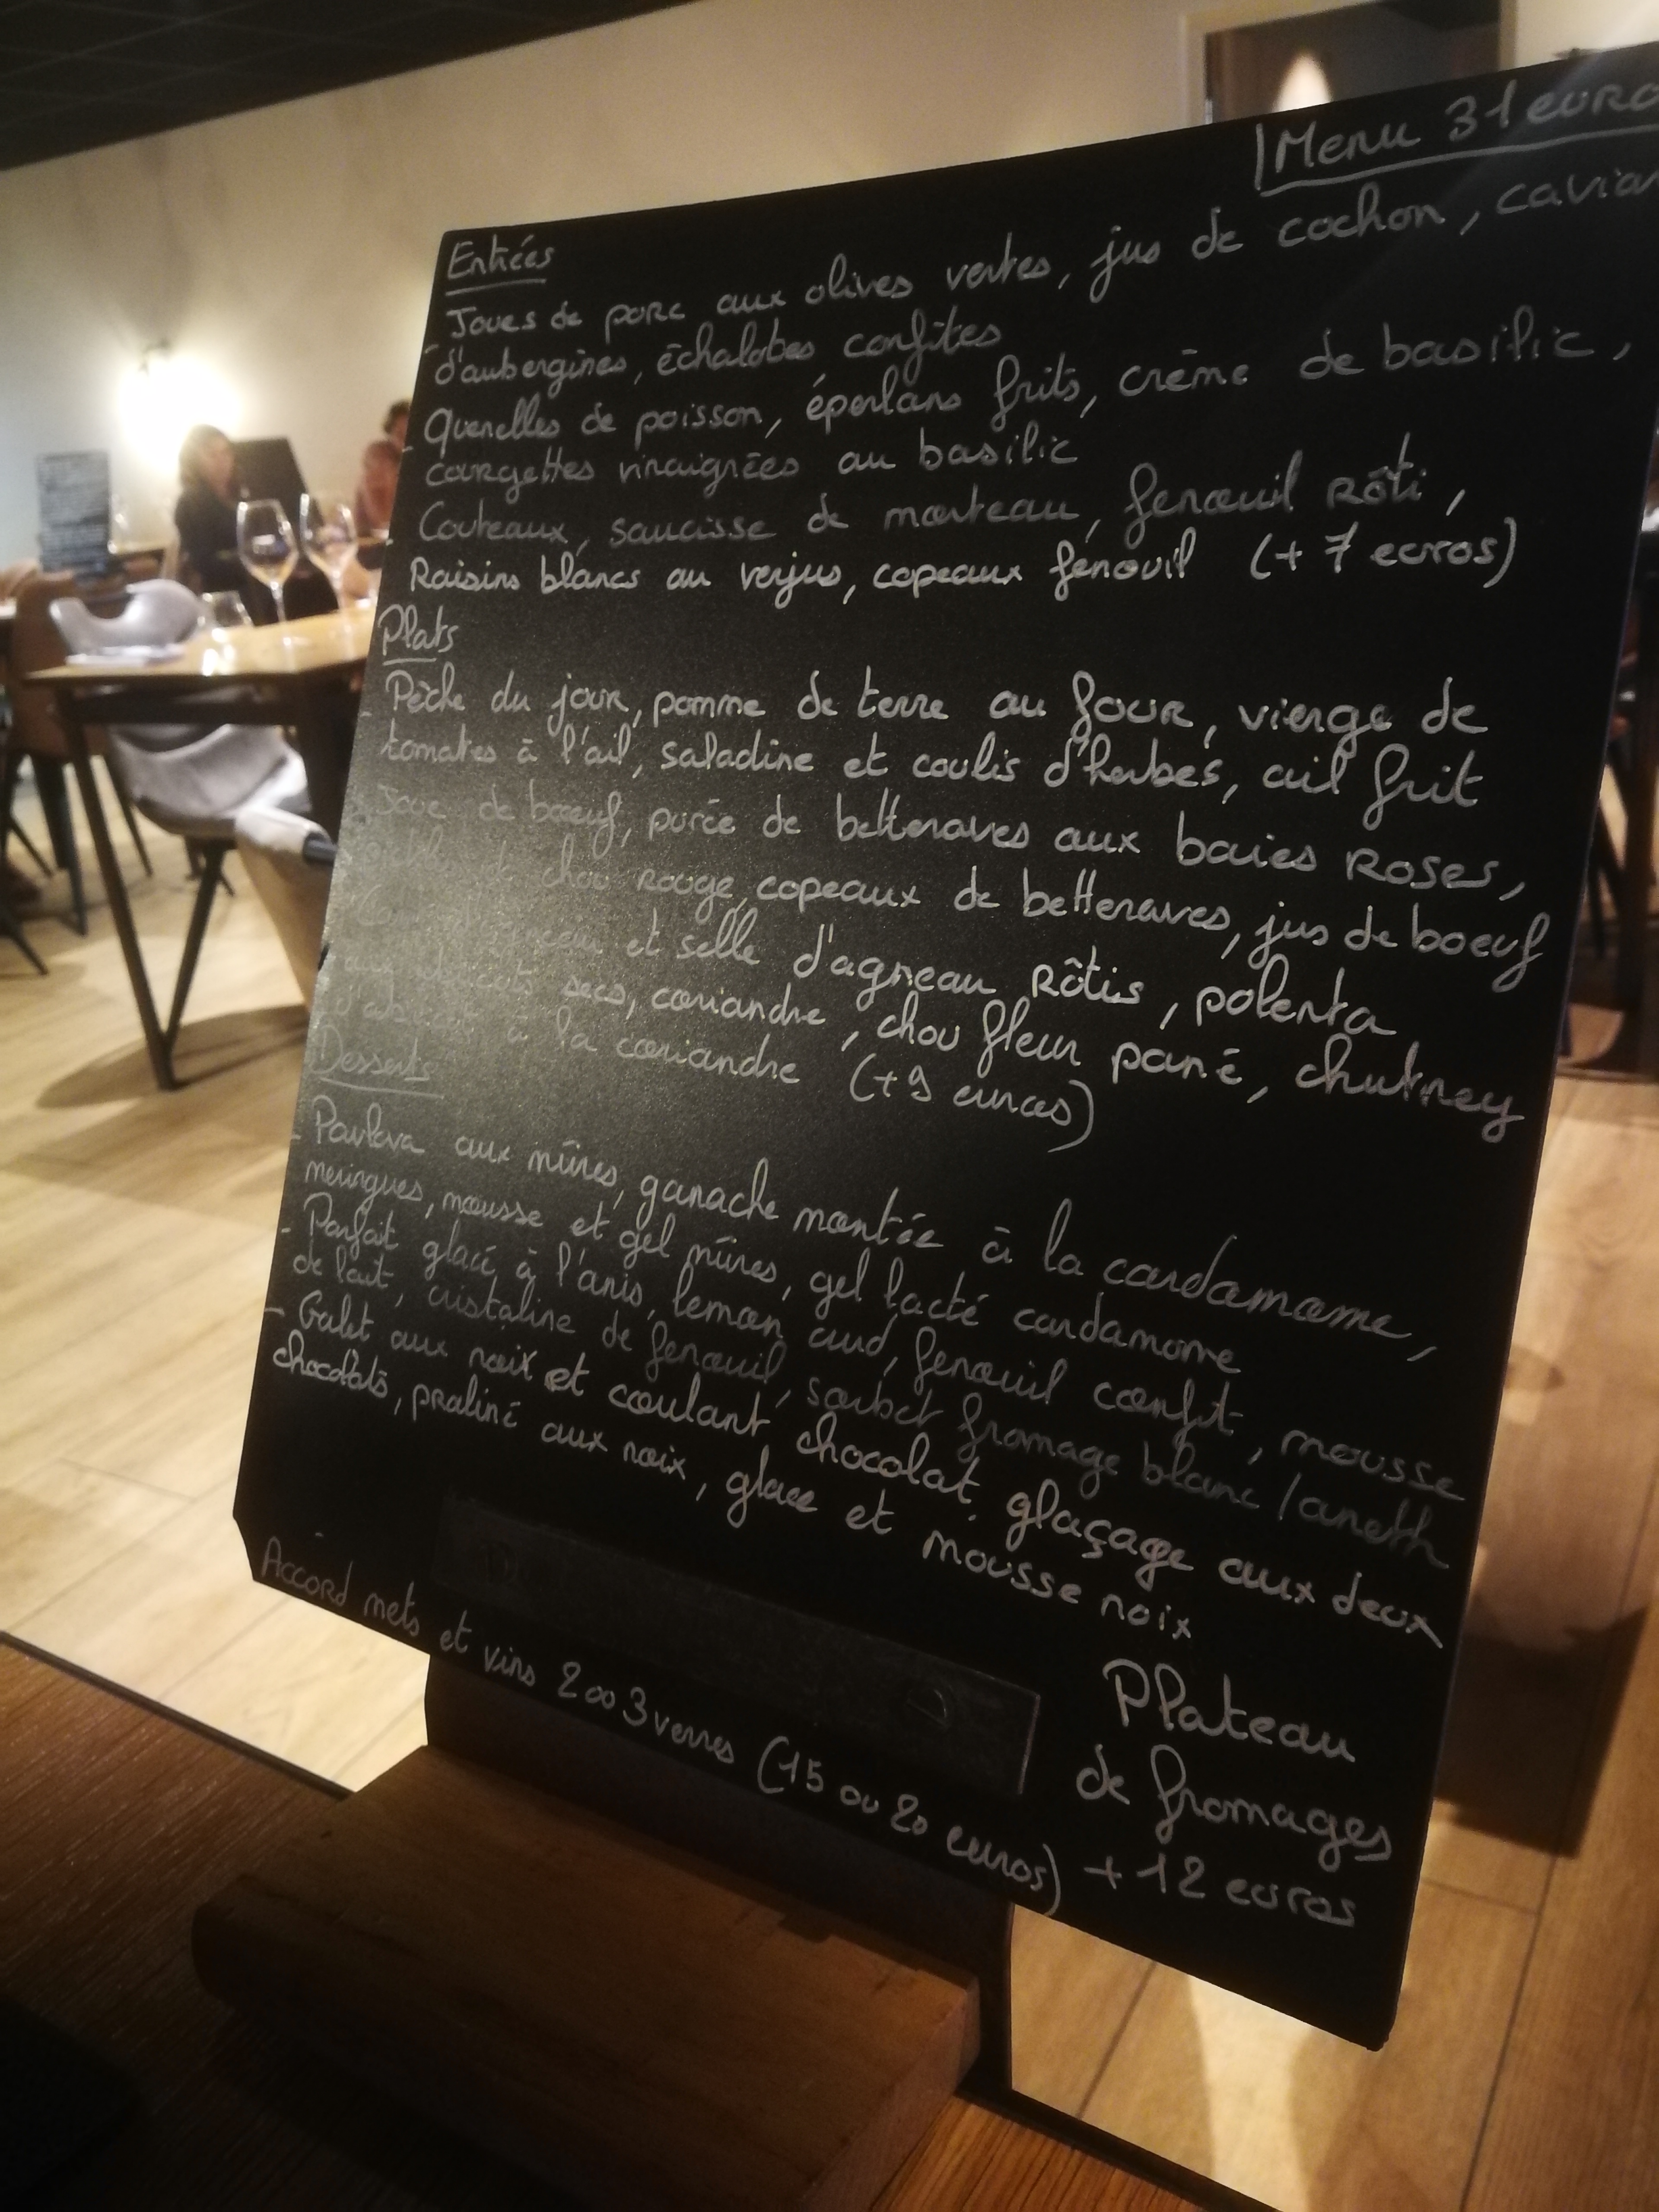 Menu 31 euro
Entrées
- Joues de porc aux olives vertes, jus de cochon, caviar
d'aubergines, échalotes confites
- Quenelles de poisson, éperlans frits, crème de basilic,
courgettes vinaigrées au basilic
Couteaux, saucisse de morteau, fenouil Rôti,
Raisins blancs au verjus, copeaux fenouil (+ 7 euros)
Plats
- Pêche du jour, pomme de terre au four, vierge de
tomates à l'ail, saladine et coulis d'herbes, ail frit
Joue de boeuf, purée de betteraves aux baies Roses,
de chou rouge, copeaux de betteraves, jus de boeuf
et selle d'agneau Rôtis, polenta
secs, coriandre, chou fleur pané, chutney
à la coriandre (+9 euros)
Desserts
- Pavlova aux mûres, ganache montée à la cardamome,
meringues, mousse et gel mûres, gel lacté cardamome
- Parfait glacé à l'anis, lemon curd, fenouil confit, mousse
de lait, cristaline de fenouil, sorbet fromage blanc / aneth
- Galet aux noix et coulant chocolat, glaçage aux deux
chocolats, praliné aux noix, glace et mousse noix
Accord mets et vins 2 ou 3 verres (15 ou 20 euros)
Plateau
de fromages
+ 12 euros